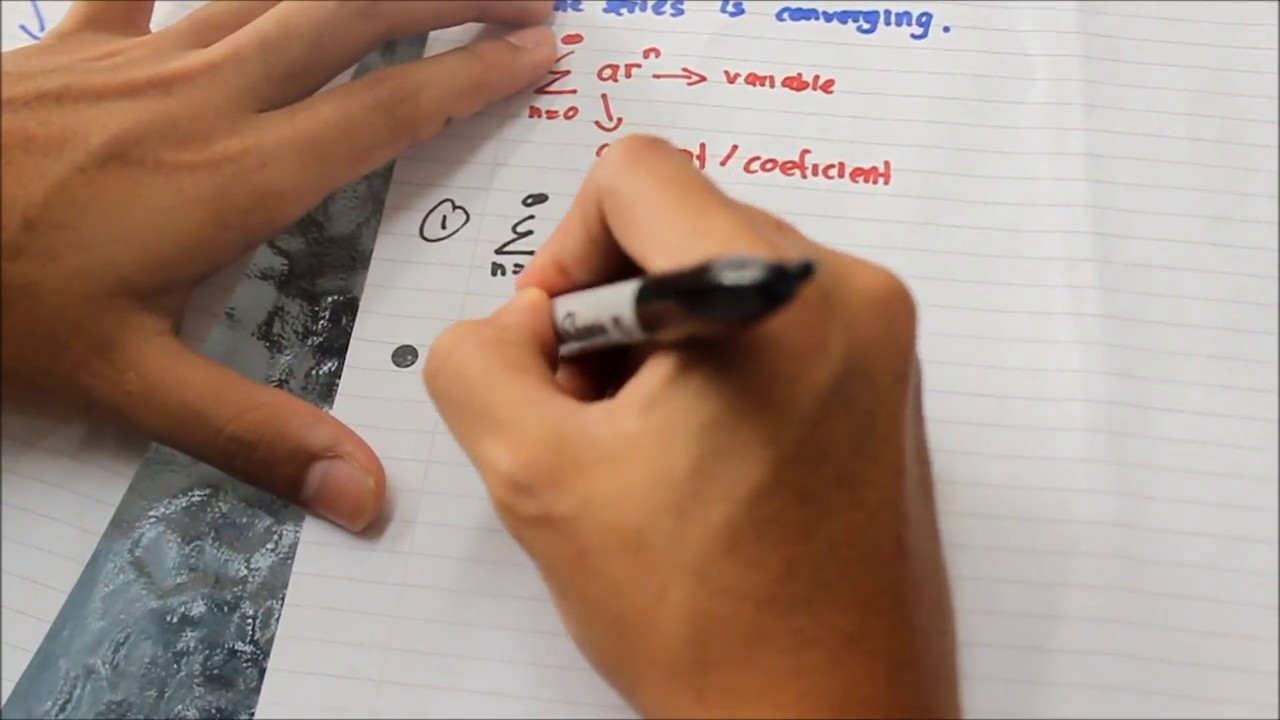 series is converging.
∞
∑ ar^n → variable
n=0
/ coeficient
① ∞
∑
n=